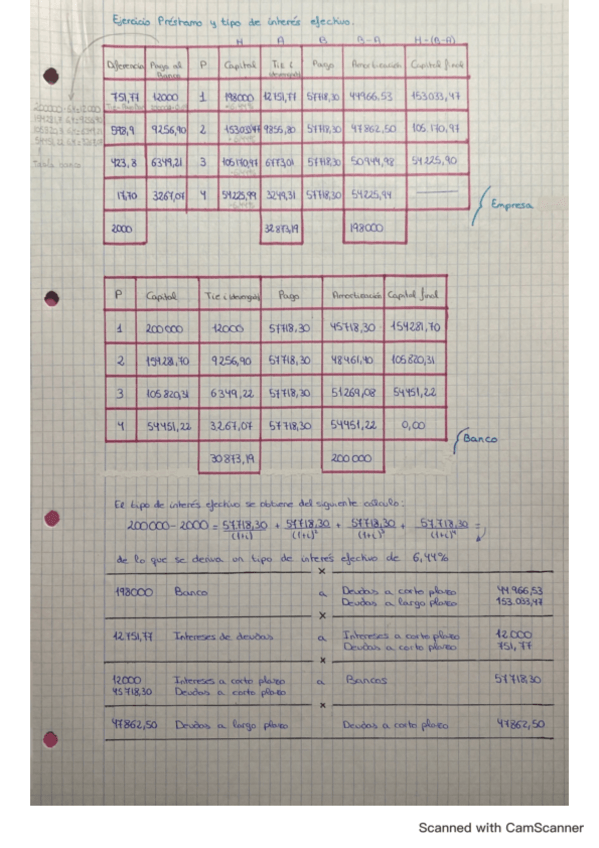 Ejercicio Préstamo y tipo de interés efectivo.
H A B B-A H-(B-A)
Diferencia Pago al Banco P Capital T.i.e i devengado Pago Amortización Capital final
751,77 12000 1 198000 12151,77 57718,30 44966,53 153033,47
9256,90 2 153033,47 9856,80 57718,30 47862,50 105.170,97
423,8 6349,21 3 105170,97 6773,01 57718,30 50944,98 54225,90
3267,07 4 54225,99 3249,31 57718,30 54225,94
2000 32873,19 198000
Empresa
P Capital T.i.e i devengado Pago Amortización Capital final
1 200000 12000 57718,30 45718,30 154281,70
2 15428,70 9256,90 57718,30 48461,40 105820,31
3 105820,31 6349,22 57718,30 51269,08 54451,22
4 54451,22 3267,07 57718,30 54451,22 0,00
Banco
30873,19 200000
El tipo de interés efectivo se obtiene del siguiente cálculo:
200000-2000 = 57718,30/(1+i) + 57718,30/(1+i)² + 57718,30/(1+i)³ + 57718,30/(1+i)⁴ =
de lo que se deriva un tipo de interés efectivo de 6,44%
x
198000 Banco a Deudas a corto plazo 44.966,53
Deudas a largo plazo 153.033,47
x
12751,77 Intereses de deudas a Intereses a corto plazo 12000
Deudas a corto plazo 751,77
x
12000 Intereses a corto plazo a Bancos 57718,30
45718,30 Deudas a corto plazo
x
47862,50 Deudas a largo plazo Deudas a corto plazo 47862,50
Scanned with CamScanner